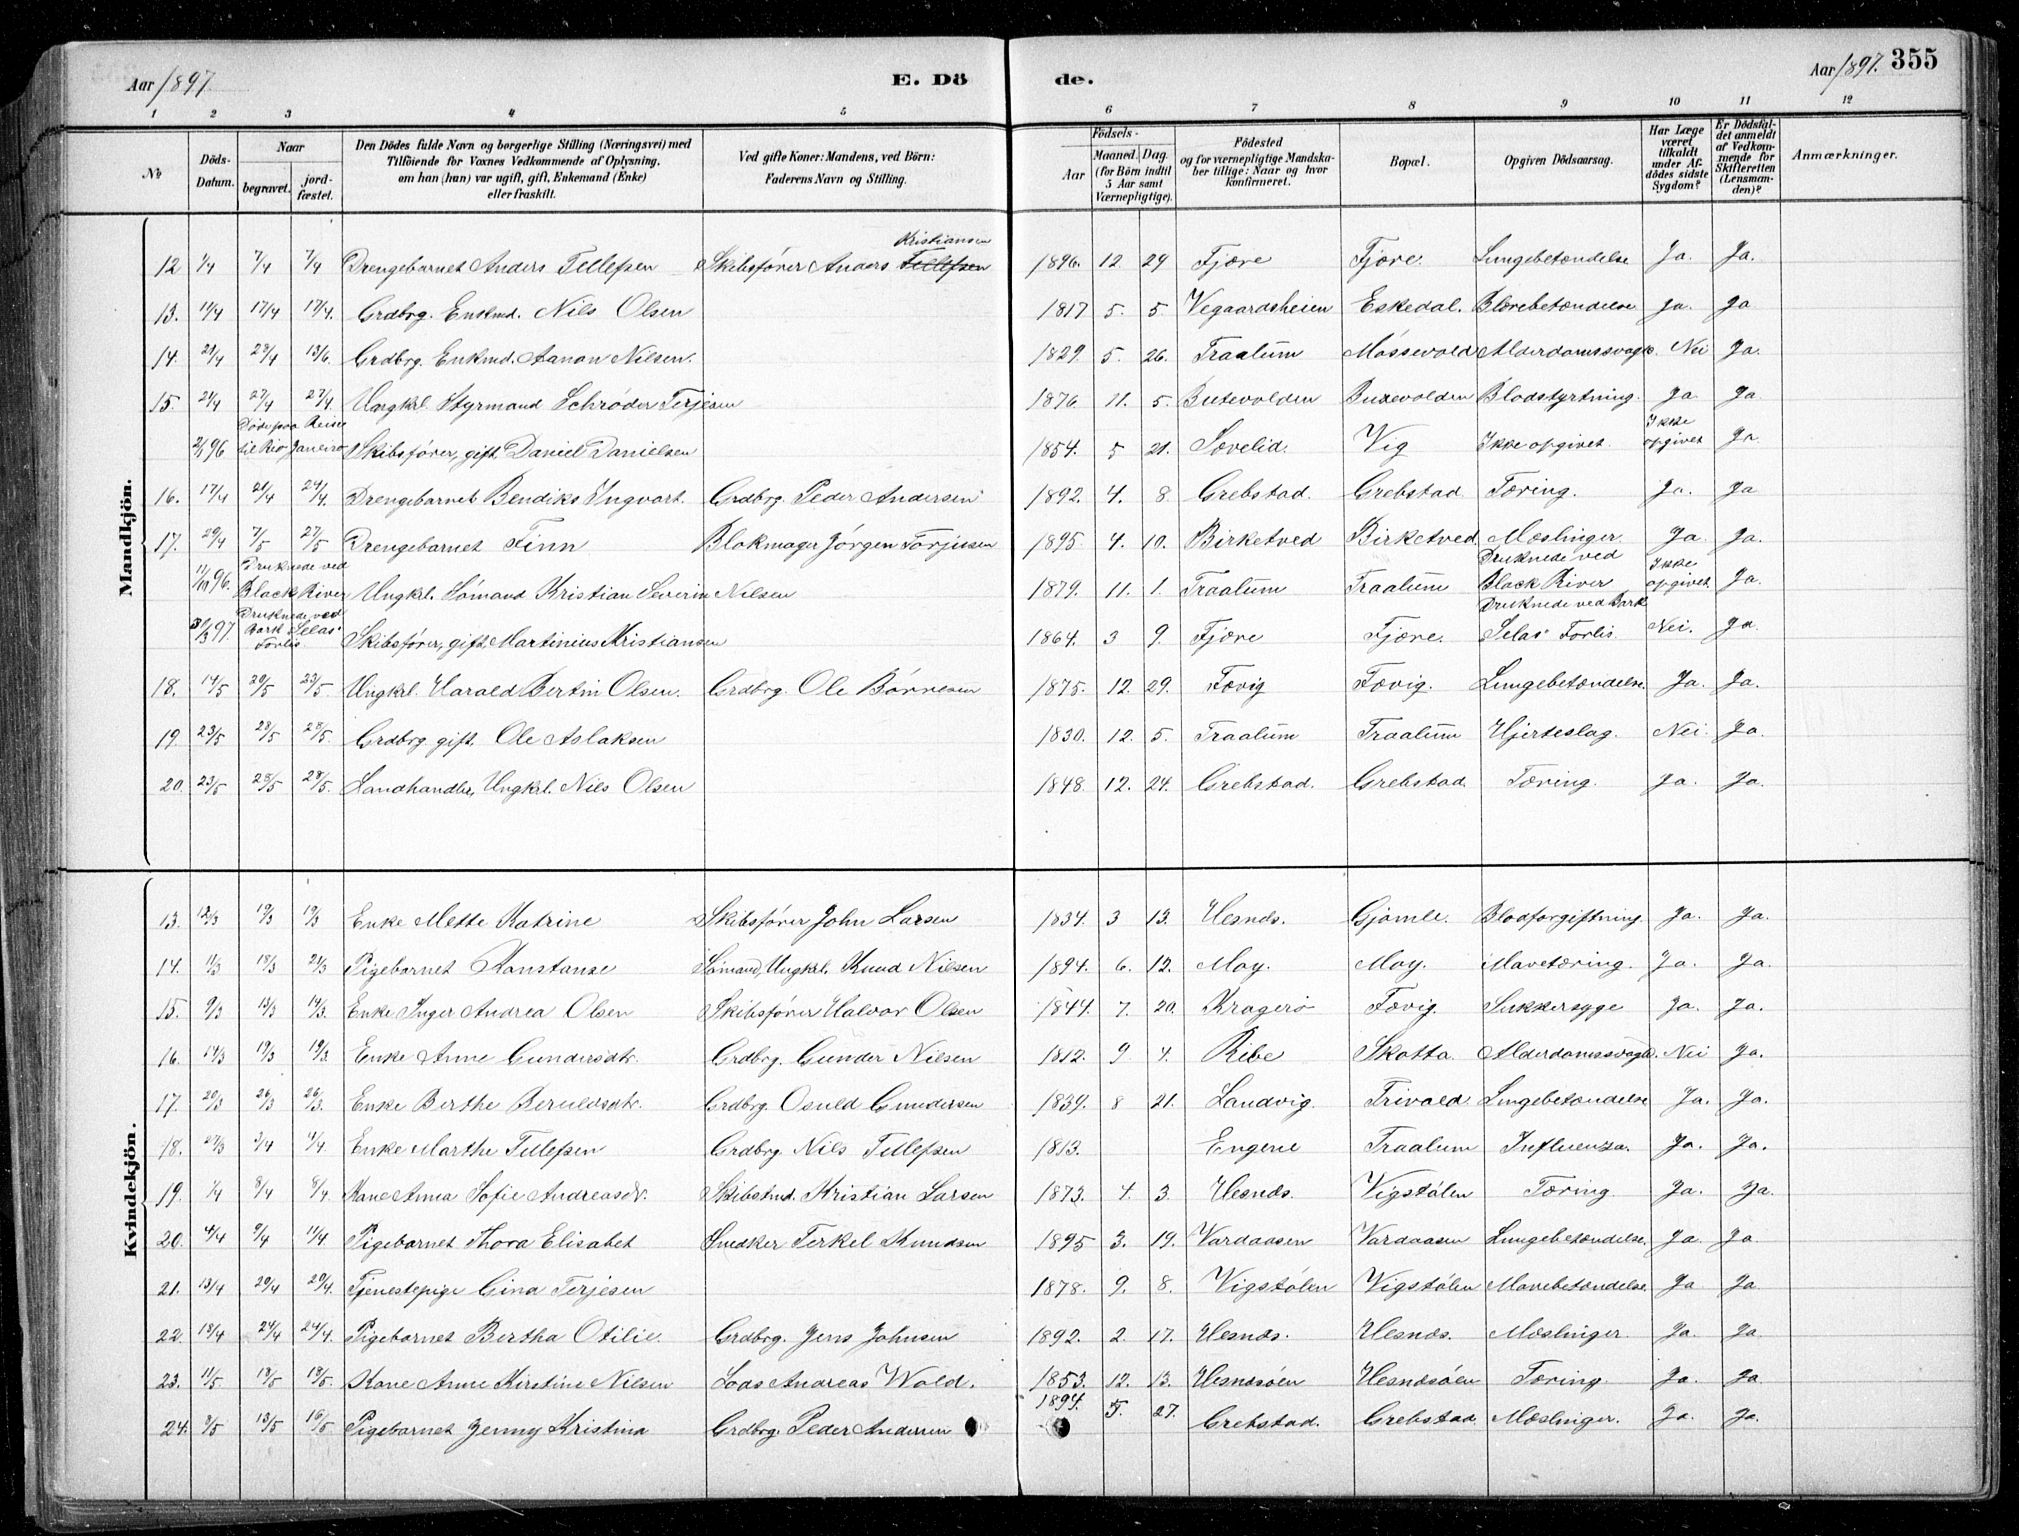 Aar 1897. E. Dö de. Aar 1897. 355
1 2 3 4 5 6 7 8 9 10 11 12
№ Döds-Datum. Naar begravet. jordfæstet. Den Dödes fulde Navn og borgerlige Stilling (Næringsvei) med Tilföiende for Voxnes Vedkommende af Oplysning, om han (hun) var ugift, gift, Enkemand (Enke) eller fraskilt. Ved gifte Koner: Mandens, ved Börn: Faderens Navn og Stilling. Födsels- Aar Maaned. Dag. (for Börn indtil 5 Aar samt Værnepligtige). Födested og for værnepligtige Mandskaber tillige: Naar og hvor konfirmeret. Bopæl. Opgiven Dödsaarsag. Har Læge været tilkaldt under Afdödes sidste Sygdom? Er Dödsfaldet anmeldt af Vedkommende for Skifteretten (Lensmanden)? Anmærkninger.
Mandkjön.
12 1/4 7/4 7/4 Drengebarnet Anders Tellefsen Skibsfører Anders Tellefsen Kristiansen 1896. 12. 24 Fjære Fjære. Lungebetændelse Ja. Ja.
13. 11/4 17/4 17/4. Grdbrg. Enkmd. Nils Olsen 1817 5. 5. Vegaardsheien Eskedal. Blærebetændelse Ja. Ja
14. 21/4 28/4 13/6. Grdbrg. Enkmd. Aanon Nilsen. 1829. 5. 26. Traalum Mossevold Alderdomssvagh. Nei Ja.
15. 21/4 27/4 27/4. Ungkrl. Styrmand Schrøder Terjesen 1876. 11. 5. Buxevolden Buxevolden Blodstyrtning. Ja Ja
2/1 96 Døde paa Reise til Rio Janeiro Skibsfører, gift, Daniel Danielsen 1854. 5 21. Sævelid. Vig Ikke opgivet. Ikke opgivet Ja.
16. 17/4 21/4 24/4. Drengebarnet Bendiks Ingvart. Grdbrg. Peder Andersen 1892. 4. 8. Grebstad. Grebstad Tæring. Ja. Ja
17. 29/4 7/5 27/5 Drengebarnet Finn Blokmager Jørgen Torjusen 1895. 4. 10. Birketved Birketved Mæslinger. Ja. Ja.
11/10 96. Druknede ved Black River Ungkl. Sømand Kristian Severin Nilsen 1879. 11. 1. Traalum Traalum Druknede ved Black River Ikke opgivet. Ja.
31/3 97. Druknede ved Bark Selas' Forlis. Skibsfører, gift, Martinius Kristiansen 1864. 3 9. Fjære Fjære. Druknede ved Bark Selas' Forlis Nei. Ja.
18. 14/5 20/5 23/5. Ungkrl. Harald Bertin Olsen. Grdbrg. Ole Børresen 1875. 12. 29. Fævig Fævig. Lungebetændelse. Ja. Ja.
19. 23/5 28/5 28/5. Grdbrg. gift. Ole Aslaksen 1830. 12. 5. Traalum Traalum Hjerteslag. Nei. Ja.
20. 23/5 28/5 28/5. Landhandler, Ungkrl. Nils Olsen 1848. 12. 24. Grebstad. Grebstad. Tæring. Ja. Ja.
Kvindekjön.
13. 12/3 19/3 19/3 Enke Mette Katrine Skibsfører John Larsen 1834. 3 13. Hesnæs. Gjømle. Blodforgiftning. Ja. Ja.
14. 11/3 18/3 21/3 Pigebarnet Konstanse Sømand, Ungkl. Knud Nilsen 1894. 6. 12. Moy. Moy. Mavetæring. Ja. Ja.
15. 9/3 13/3 14/3. Enke Inger Andrea Olsen Skibsfører Halvor Olsen 1844. 7. 20. Kragerø Fævig. Sukkersyge Ja. Ja.
16. 14/3 19/3 19/3 Enke Anne Gundersdtr. Grdbrg. Gunder Nilsen 1812. 9 4. Ribe Skotta. Alderdomssvagh. Nei Ja.
17. 20/3 26/3 26/3. Enke Berthe Beruldsdtr. Grdbrg. Osuld Gundersen 1839. 8 21. Landvig. Trivold. Lungebetændelse Ja. Ja.
18. 27/3 3/4 4/4. Enke Marthe Tellefsen Grdbrg. Nils Tellefsen 1813. Engene Traalum Influenza. Ja. Ja.
19. 1/4 8/4 8/4. Kone Anna Sofie Andreasdr. Skibstmd. Kristian Larsen 1873. 4. 3. Hesnæs. Vigstølen Tæring. Ja. Ja.
20. 4/4 9/4 11/4 Pigebarnet Thora Elisabet Snedker Terkel Knudsen 1895 3. 19. Vardaasen Vardaasen Lungebetændelse. Ja. Ja
21. 13/4 20/4 20/4. Tjenestepige Gina Terjesen 1878. 9. 8. Vigstølen Vigstølen Mavebetændelse. Ja Ja
22. 18/4 24/4 24/4. Pigebarnet Bertha Otilie Grdbrg. Jens Johnsen 1892. 2. 17. Hesnæs. Hesnæs. Mæslinger. Ja. Ja.
23. 11/5. 18/5 18/5. Kone Anne Kirstine Nilsen Lods Andreas Wold. 1853. 12. 13. Hesnæsøen Hesnæsøen Tæring. Ja. Ja
24. 8/5 13/5 16/5 Pigebarnet Jenny Kristina Grdbrg. Peder Andersen 1894. 5. 27. Grebstad. Grebstad. Mæslinger. Ja. Ja.